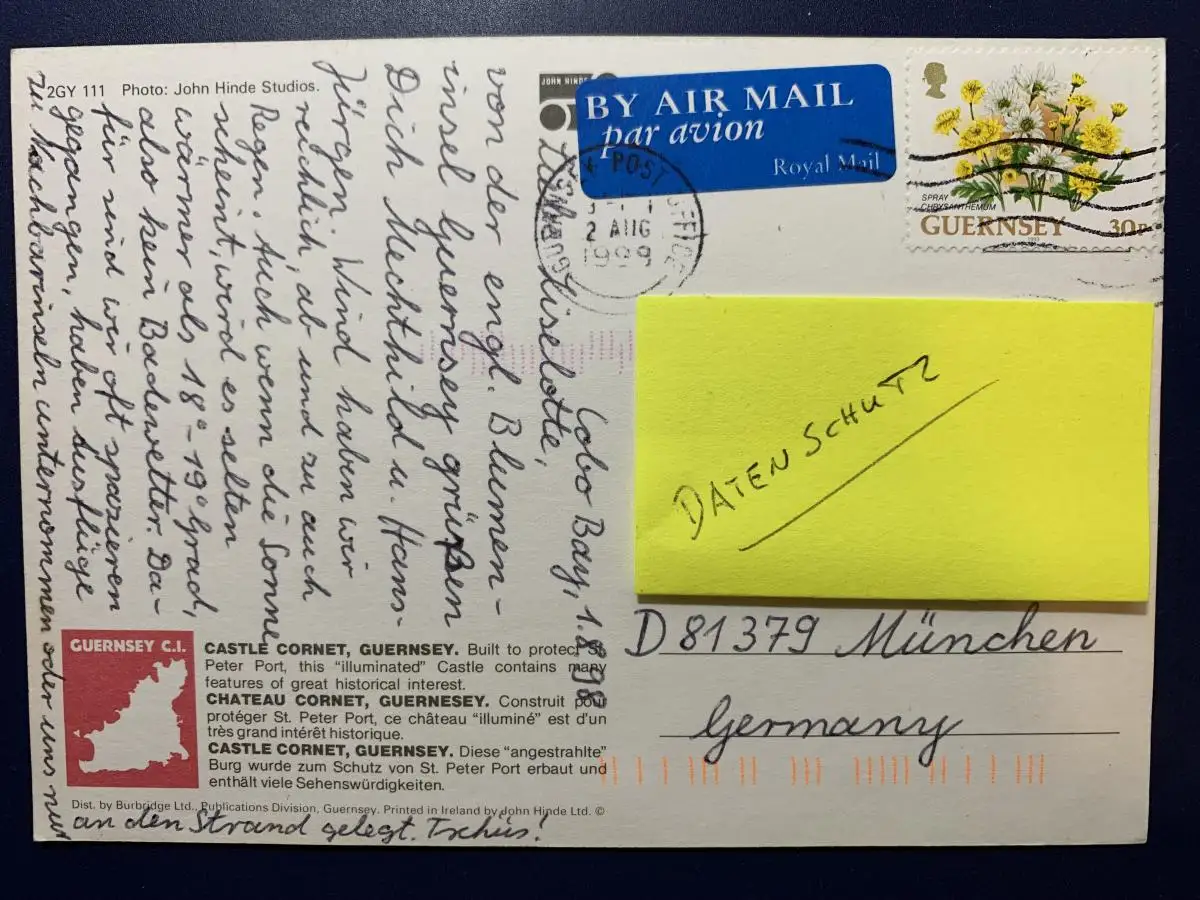 2GY 111 Photo: John Hinde Studios.
JOHN HINDE
BY AIR MAIL
par avion
Royal Mail
POST OFFICE
GUERNSEY
2 AUG
1999
SPRAY
CHRYSANTHEMUM
GUERNSEY 30p
Cobo Bay, 1.8.98
Liebe Liselotte,
von der engl. Blumen-
insel Guernsey grüßen
Dich Mechthild u. Hans-
Jürgen. Wind haben wir
reichlich, ab und zu auch
Regen. Auch wenn die Sonne
scheint, wird es selten
wärmer als 18°-19° Grad,
also kein Badewetter. Da-
für sind wir oft spazieren
gegangen, haben Ausflüge
zu Nachbarinseln unternommen oder uns nur
an den Strand gelegt. Tschüs!
DATENSCHUTZ
D 81379 München
Germany
GUERNSEY C.I.
CASTLE CORNET, GUERNSEY. Built to protect St.
Peter Port, this “illuminated” Castle contains many
features of great historical interest.
CHATEAU CORNET, GUERNESEY. Construit pour
protéger St. Peter Port, ce château “illuminé” est d'un
très grand intérêt historique.
CASTLE CORNET, GUERNSEY. Diese “angestrahlte”
Burg wurde zum Schutz von St. Peter Port erbaut und
enthält viele Sehenswürdigkeiten.
Dist. by Burbridge Ltd., Publications Division, Guernsey. Printed in Ireland by John Hinde Ltd. ©